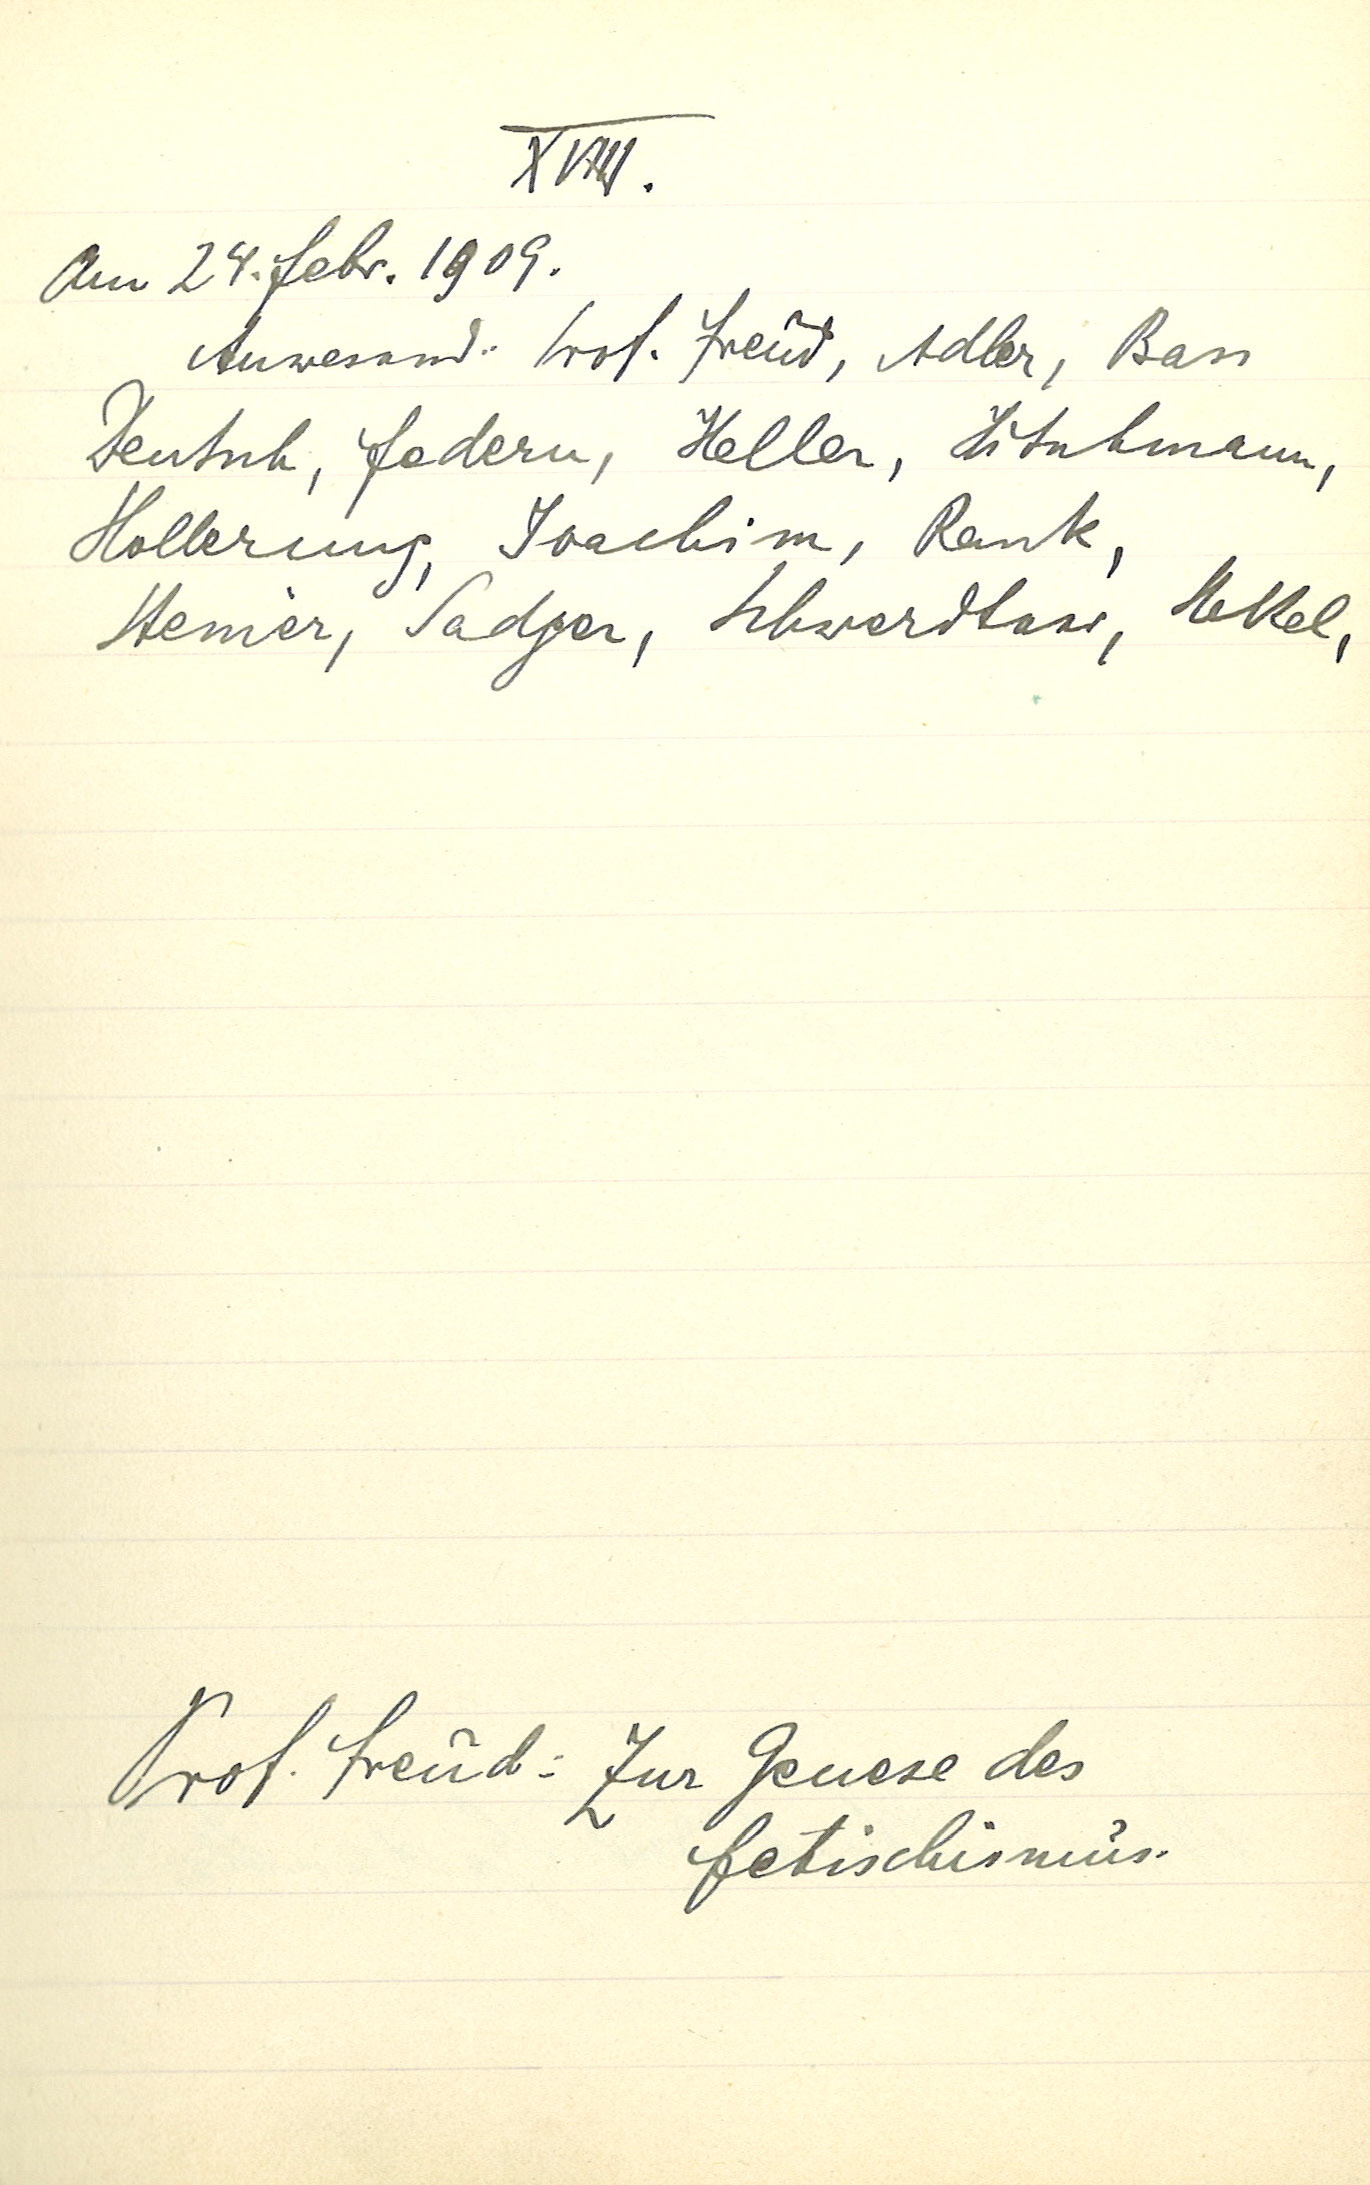 XVIII.
Am 24. Febr. 1909.
Anwesend: Prof. Freud, Adler, Bass
Deutsch, Federn, Heller, Hitschmann,
Hollerung, Joachim, Rank,
Steiner, Sadger, Schwerdtner, Stekel,
Prof. Freud: Zur Genese des
Fetischismus.